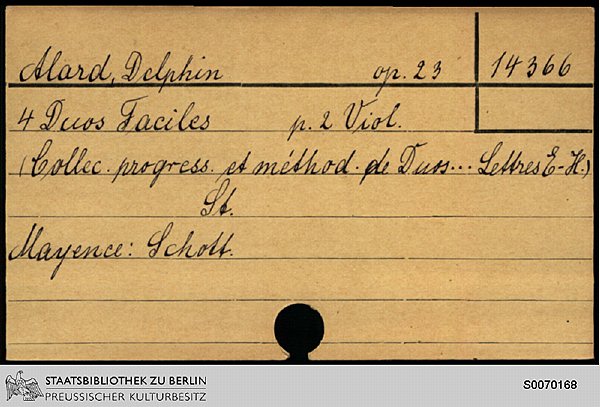 Alard, Delphin op. 23 14366
4 Duos Faciles p. 2 Viol.
(Collec. progress. et méthod. de Duos... Lettres E-H.)
St.
Mayence: Schott.
STAATSBIBLIOTHEK ZU BERLIN
PREUSSISCHER KULTURBESITZ
S0070168